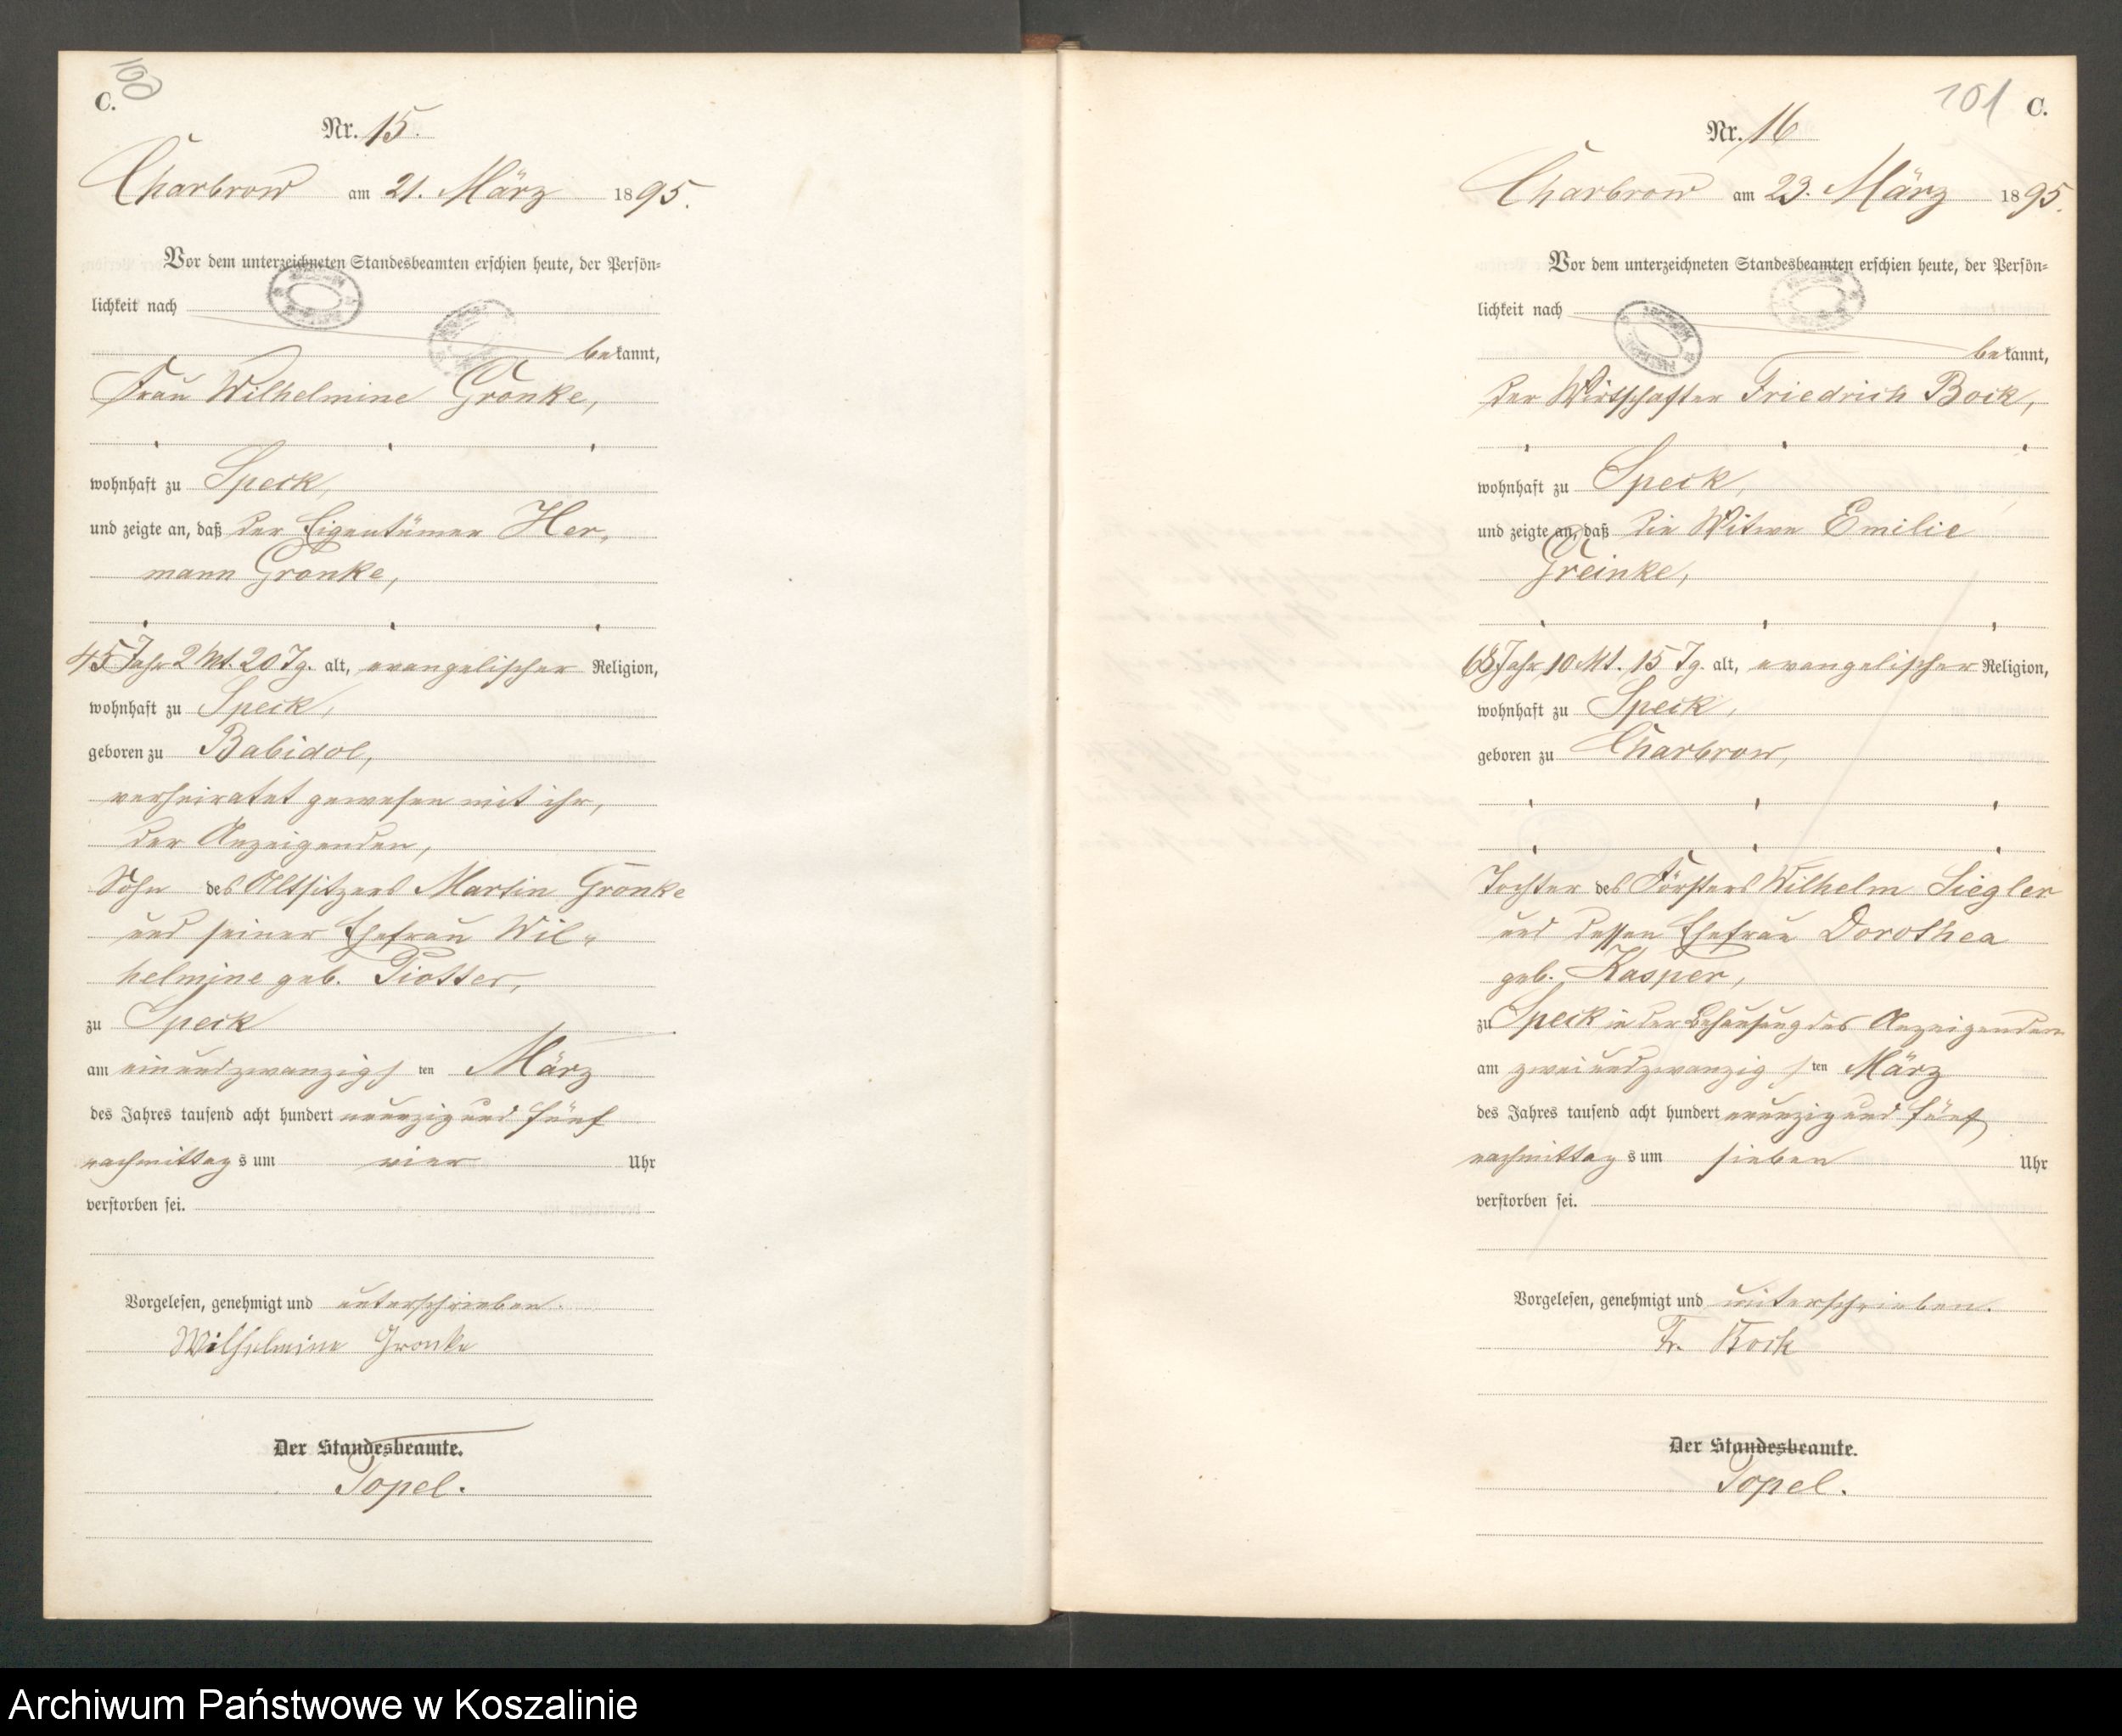 100
C.
Nr. 15.
Charbrow am 21. März 1895.
Vor dem unterzeichneten Standesbeamten erschien heute, der Persön-
lichkeit nach
bekannt,
Frau Wilhelmine Gronke,
wohnhaft zu Speck,
und zeigte an, daß der Eigentümer Her-
mann Gronke,
45 Jahr 2 Mt. 20 Tg. alt, evangelischer Religion,
wohnhaft zu Speck,
geboren zu Babidol,
verheiratet gewesen mit ihr,
der Anzeigenden,
Sohn des Altsitzers Martin Gronke
und seiner Ehefrau Wil-
helmine geb. Piotter,
zu Speck
am einundzwanzigsten März
des Jahres tausend acht hundert neunzig und fünf
nachmittags um vier Uhr
verstorben sei.
Vorgelesen, genehmigt und unterschrieben.
Wilhelmine Gronke
Der Standesbeamte.
Topel.
101 C.
Nr. 16
Charbrow am 23. März 1895.
Vor dem unterzeichneten Standesbeamten erschien heute, der Persön-
lichkeit nach
bekannt,
der Wirtschafter Friedrich Bock,
wohnhaft zu Speck,
und zeigte an, daß die Witwe Emilie
Greinke,
68 Jahr 10 Mt. 15 Tg. alt, evangelischer Religion,
wohnhaft zu Speck,
geboren zu Charbrow,
Tochter des Försters Wilhelm Siegler
und dessen Ehefrau Dorothea
geb. Kasper,
zu Speck in der Behausung des Anzeigenden
am zweiundzwanzigsten März
des Jahres tausend acht hundert neunzig und fünf
nachmittags um sieben Uhr
verstorben sei.
Vorgelesen, genehmigt und unterschrieben.
Fr. Bock
Der Standesbeamte.
Topel.
Archiwum Państwowe w Koszalinie